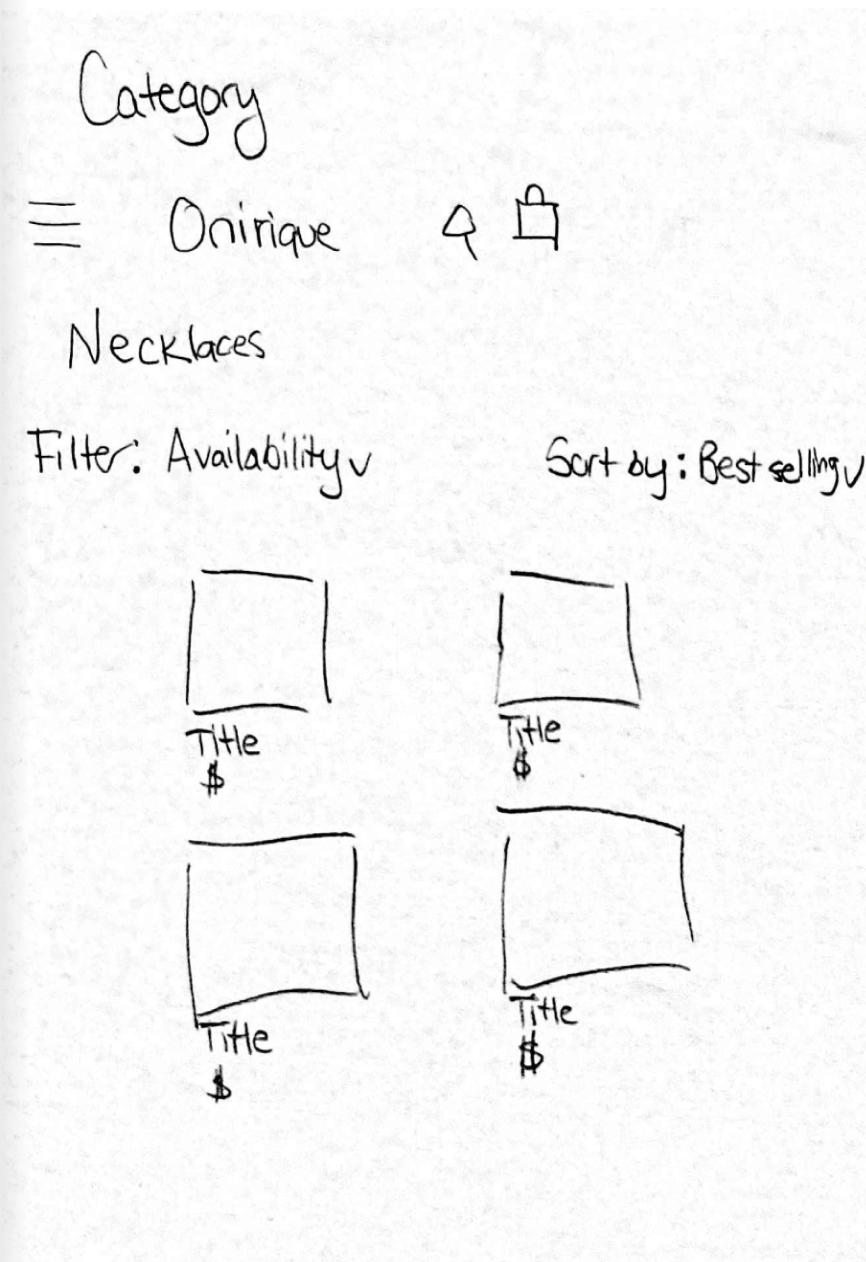 Category
Onirique
Necklaces
Filter: Availability
Sort by: Best selling
Title
$
Title
$
Title
$
Title
$